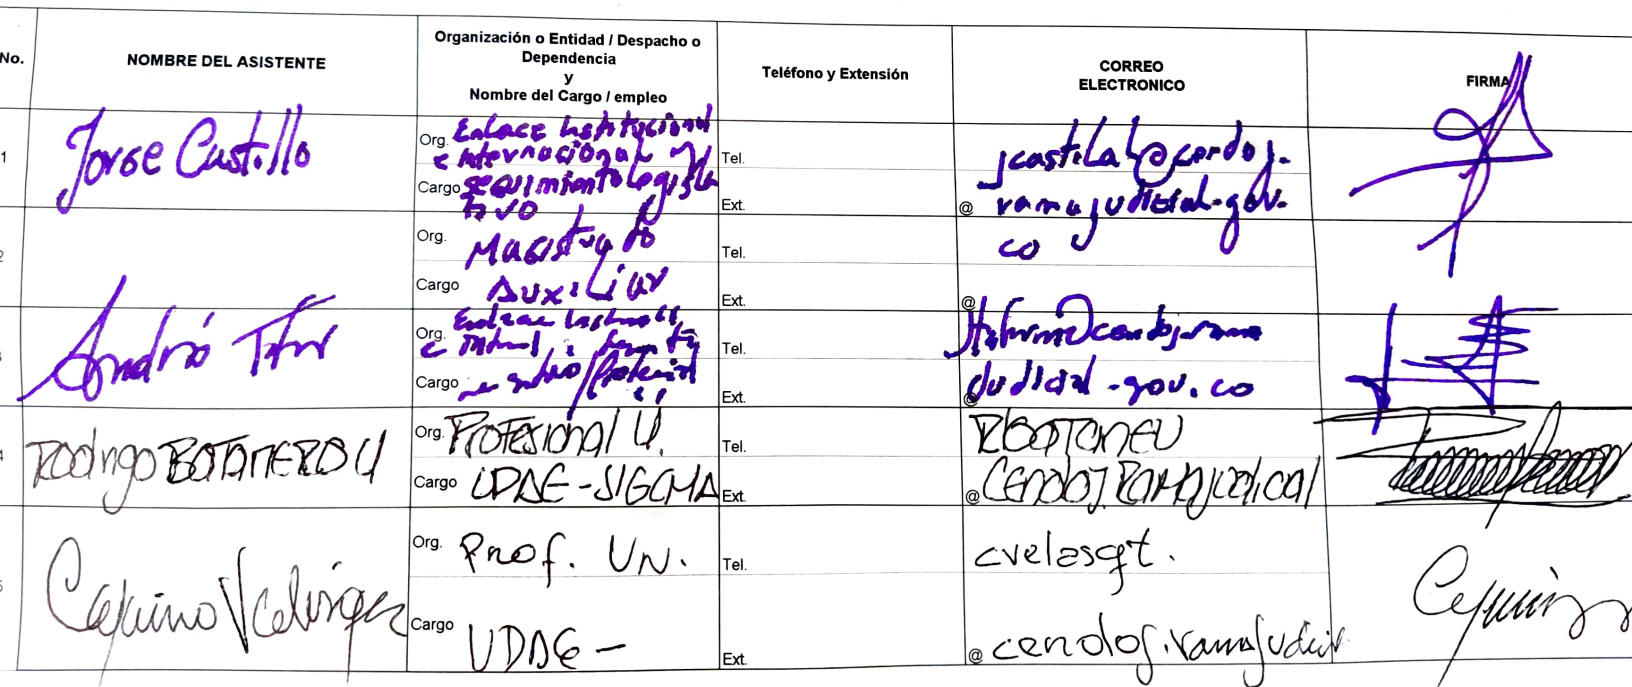 No.
NOMBRE DEL ASISTENTE
Organización o Entidad / Despacho o
Dependencia
y
Nombre del Cargo / empleo
Teléfono y Extensión
CORREO
ELECTRONICO
FIRMA
1
Jorge Castillo
Org. Enlace Institucional
e internacional y
Cargo seguimiento Legisla
tivo
Tel.
Ext.
jcastilal@cendoj.
@ ramajudicial.gov.
co
2
Org. Magistrado
Cargo Auxiliar
Tel.
Ext.
@
3
Org. Enlace
Cargo
Tel.
Ext.
cendoj.rama
@ Judicial.gov.co
4
Rodrigo BOTANERO U
Org. Profesional U.
Cargo UDAE-SIGCMA
Tel.
Ext.
RBOTANEU
@ CENDOJ.RAMAJUDICIAL
5
Org. Prof. UN.
Cargo UDAE -
Tel.
Ext.
cvelasqt.
@ cendoj.ramajudicial